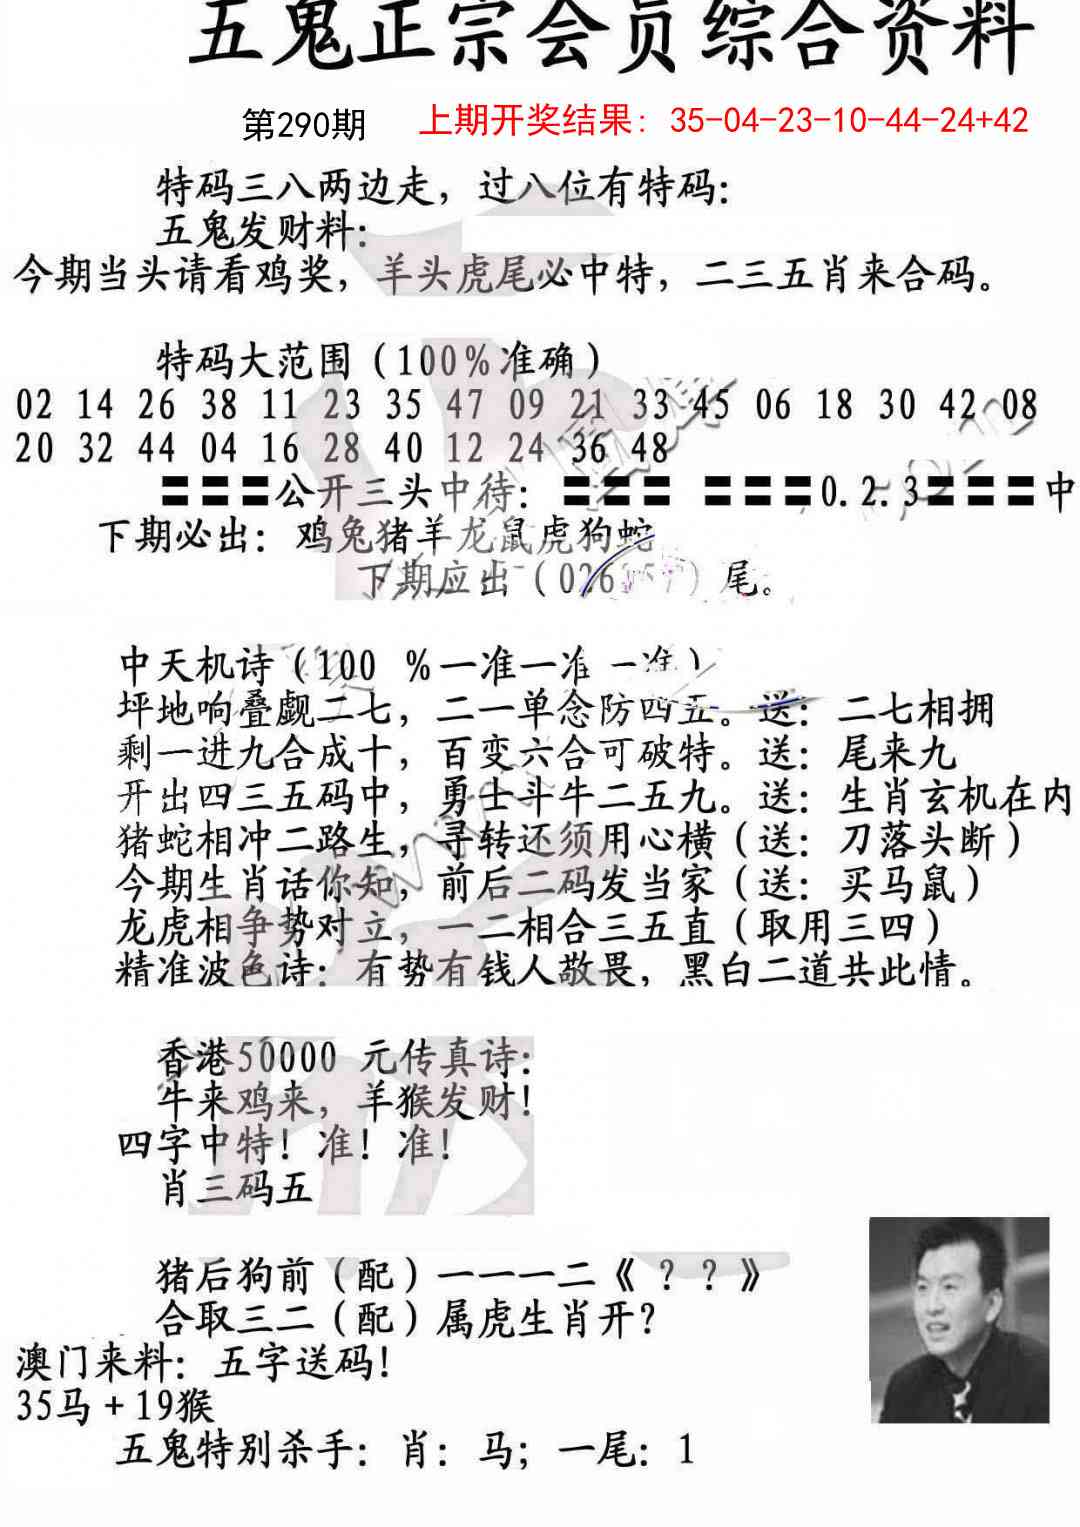 五鬼正宗会员综合资料
第290期 上期开奖结果: 35-04-23-10-44-24+42
特码三八两边走，过八位有特码:
五鬼发财料:
今期当头请看鸡奖，羊头虎尾必中特，二三五肖来合码。
特码大范围(100%准确)
02 14 26 38 11 23 35 47 09 21 33 45 06 18 30 42 08
20 32 44 04 16 28 40 12 24 36 48
〓〓〓公开三头中待: 〓〓〓 〓〓〓0.2.3〓〓〓中
下期必出: 鸡兔猪羊龙鼠虎狗蛇
下期应出(026 )尾。
中天机诗(100 %一准一准一准)
坪地响叠觑二七，二一单念防四五。送: 二七相拥
剩一进九合成十，百变六合可破特。送: 尾来九
开出四三五码中，勇士斗牛二五九。送: 生肖玄机在内
猪蛇相冲二路生，寻转还须用心横(送: 刀落头断)
今期生肖话你知，前后二码发当家(送: 买马鼠)
龙虎相争势对立，一二相合三五直(取用三四)
精准波色诗: 有势有钱人敬畏，黑白二道共此情。
香港50000 元传真诗:
牛来鸡来，羊猴发财!
四字中特! 准! 准!
肖三码五
猪后狗前(配)一一一二《 ? ? 》
合取三二(配)属虎生肖开?
澳门来料: 五字送码!
35马+19猴
五鬼特别杀手: 肖: 马; 一尾: 1